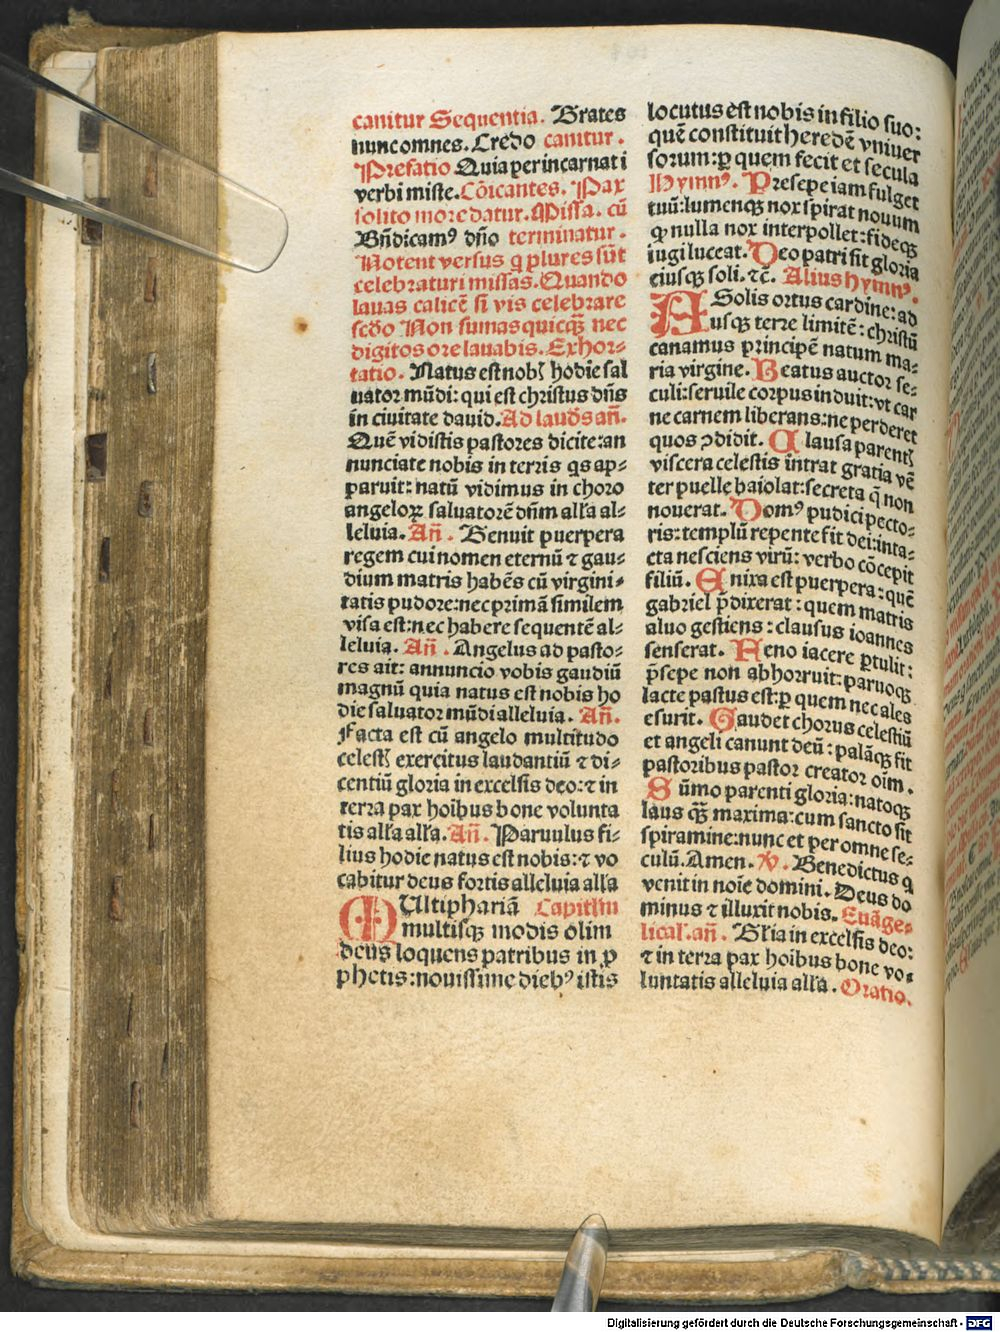 canitur Sequentia. Grates
nunc omnes. Credo canitur.
Prefatio Quia per incarnati
verbi miste. Cōicantes. Pax
solito more datur. Missa. cū
Bn̄dicamꝰ dn̄o terminatur.
Notent versus q plures sūt
celebraturi missas. Quando
lauas calicē si vis celebrare
scd̄o Non sumas quicqʒ nec
digitos ore lauabis. Exhor⸗
tatio. Natus est nob̄ hodie sal
uator mūdi: qui est christus dn̄s
in ciuitate dauid. Ad laud̄s an̄.
Quē vidistis pastores dicite: an
nunciate nobis in terris qs ap⸗
paruit: natū vidimus in choro
angeloꝝ saluatorē dn̄m all̄a al⸗
leluia. An̄. Genuit puerpera
regem cui nomen eternū ⁊ gau⸗
dium matris habēs cū virgini⸗
tatis pudore: nec primā similem
visa est: nec habere sequentē al⸗
leluia. An̄. Angelus ad pasto⸗
res ait: annuncio vobis gaudiū
magnū quia natus est nobis ho
die saluator mūdi alleluia. An̄.
Facta est cū angelo multitudo
celest̄ exercitus laudantiū ⁊ di⸗
centiū gloria in excelsis deo: ⁊ in
terra pax hoı̄bus bone volunta
tis all̄a all̄a. An̄. Paruulus fi⸗
lius hodie natus est nobis: ⁊ vo
cabitur deus fortis alleluia all̄a
MUltiphariā Capitl̄m
multisqʒ modis olim
deus loquens patribus in ꝓ
phetis: nouissime diebꝰ istis
locutus est nobis in filio suo:
quē constituit heredē vniuer
sorum: ꝑ quem fecit et secula
Hymnꝰ. Presepe iam fulget
tuū: lumenqʒ nox spirat nouum
ꝙ nulla nox interpollet: fideqʒ
iugi luceat. Deo patri sit gloria
eiusqʒ soli. ⁊c̄. Alius hymnꝰ.
A Solis ortus cardine: ad
usqʒ terre limitē: christū
canamus principē natum ma⸗
ria virgine. Beatus auctor se⸗
culi: seruile corpus induit: vt car
ne carnem liberans: ne perderet
quos ↄdidit. Clausa parent̄
viscera celestis intrat gratia vē
ter puelle baiolat: secreta q̄ non
nouerat. Domꝰ pudici pecto⸗
ris: templū repente fit dei: inta⸗
cta nesciens virū: verbo cōcepit
filiū. Enixa est puerpera: quē
gabriel p̄dixerat: quem matris
aluo gestiens: clausus ioannes
senserat. Feno iacere ꝑtulit:
p̄sepe non abhorruit: paruoqʒ
lacte pastus est: ꝑ quem nec ales
esurit. Gaudet chorus celestiū
et angeli canunt deū: palāqʒ fit
pastoribus pastor creator oı̄m.
Sūmo parenti gloria: natoqʒ
laus qʒ maxima: cum sancto sit
spiramine: nunc et per omne se⸗
culū. Amen. V̄. Benedictus q
venit in noı̄e domini. Deus do
minus ⁊ illuxit nobis. Euāge⸗
lical. an̄. Gl̄ia in excelsis deo:
⁊ in terra pax hoı̄bus bone vo⸗
luntatis alleluia all̄a. Oratio.
Digitalisierung gefördert durch die Deutsche Forschungsgemeinschaft - DFG